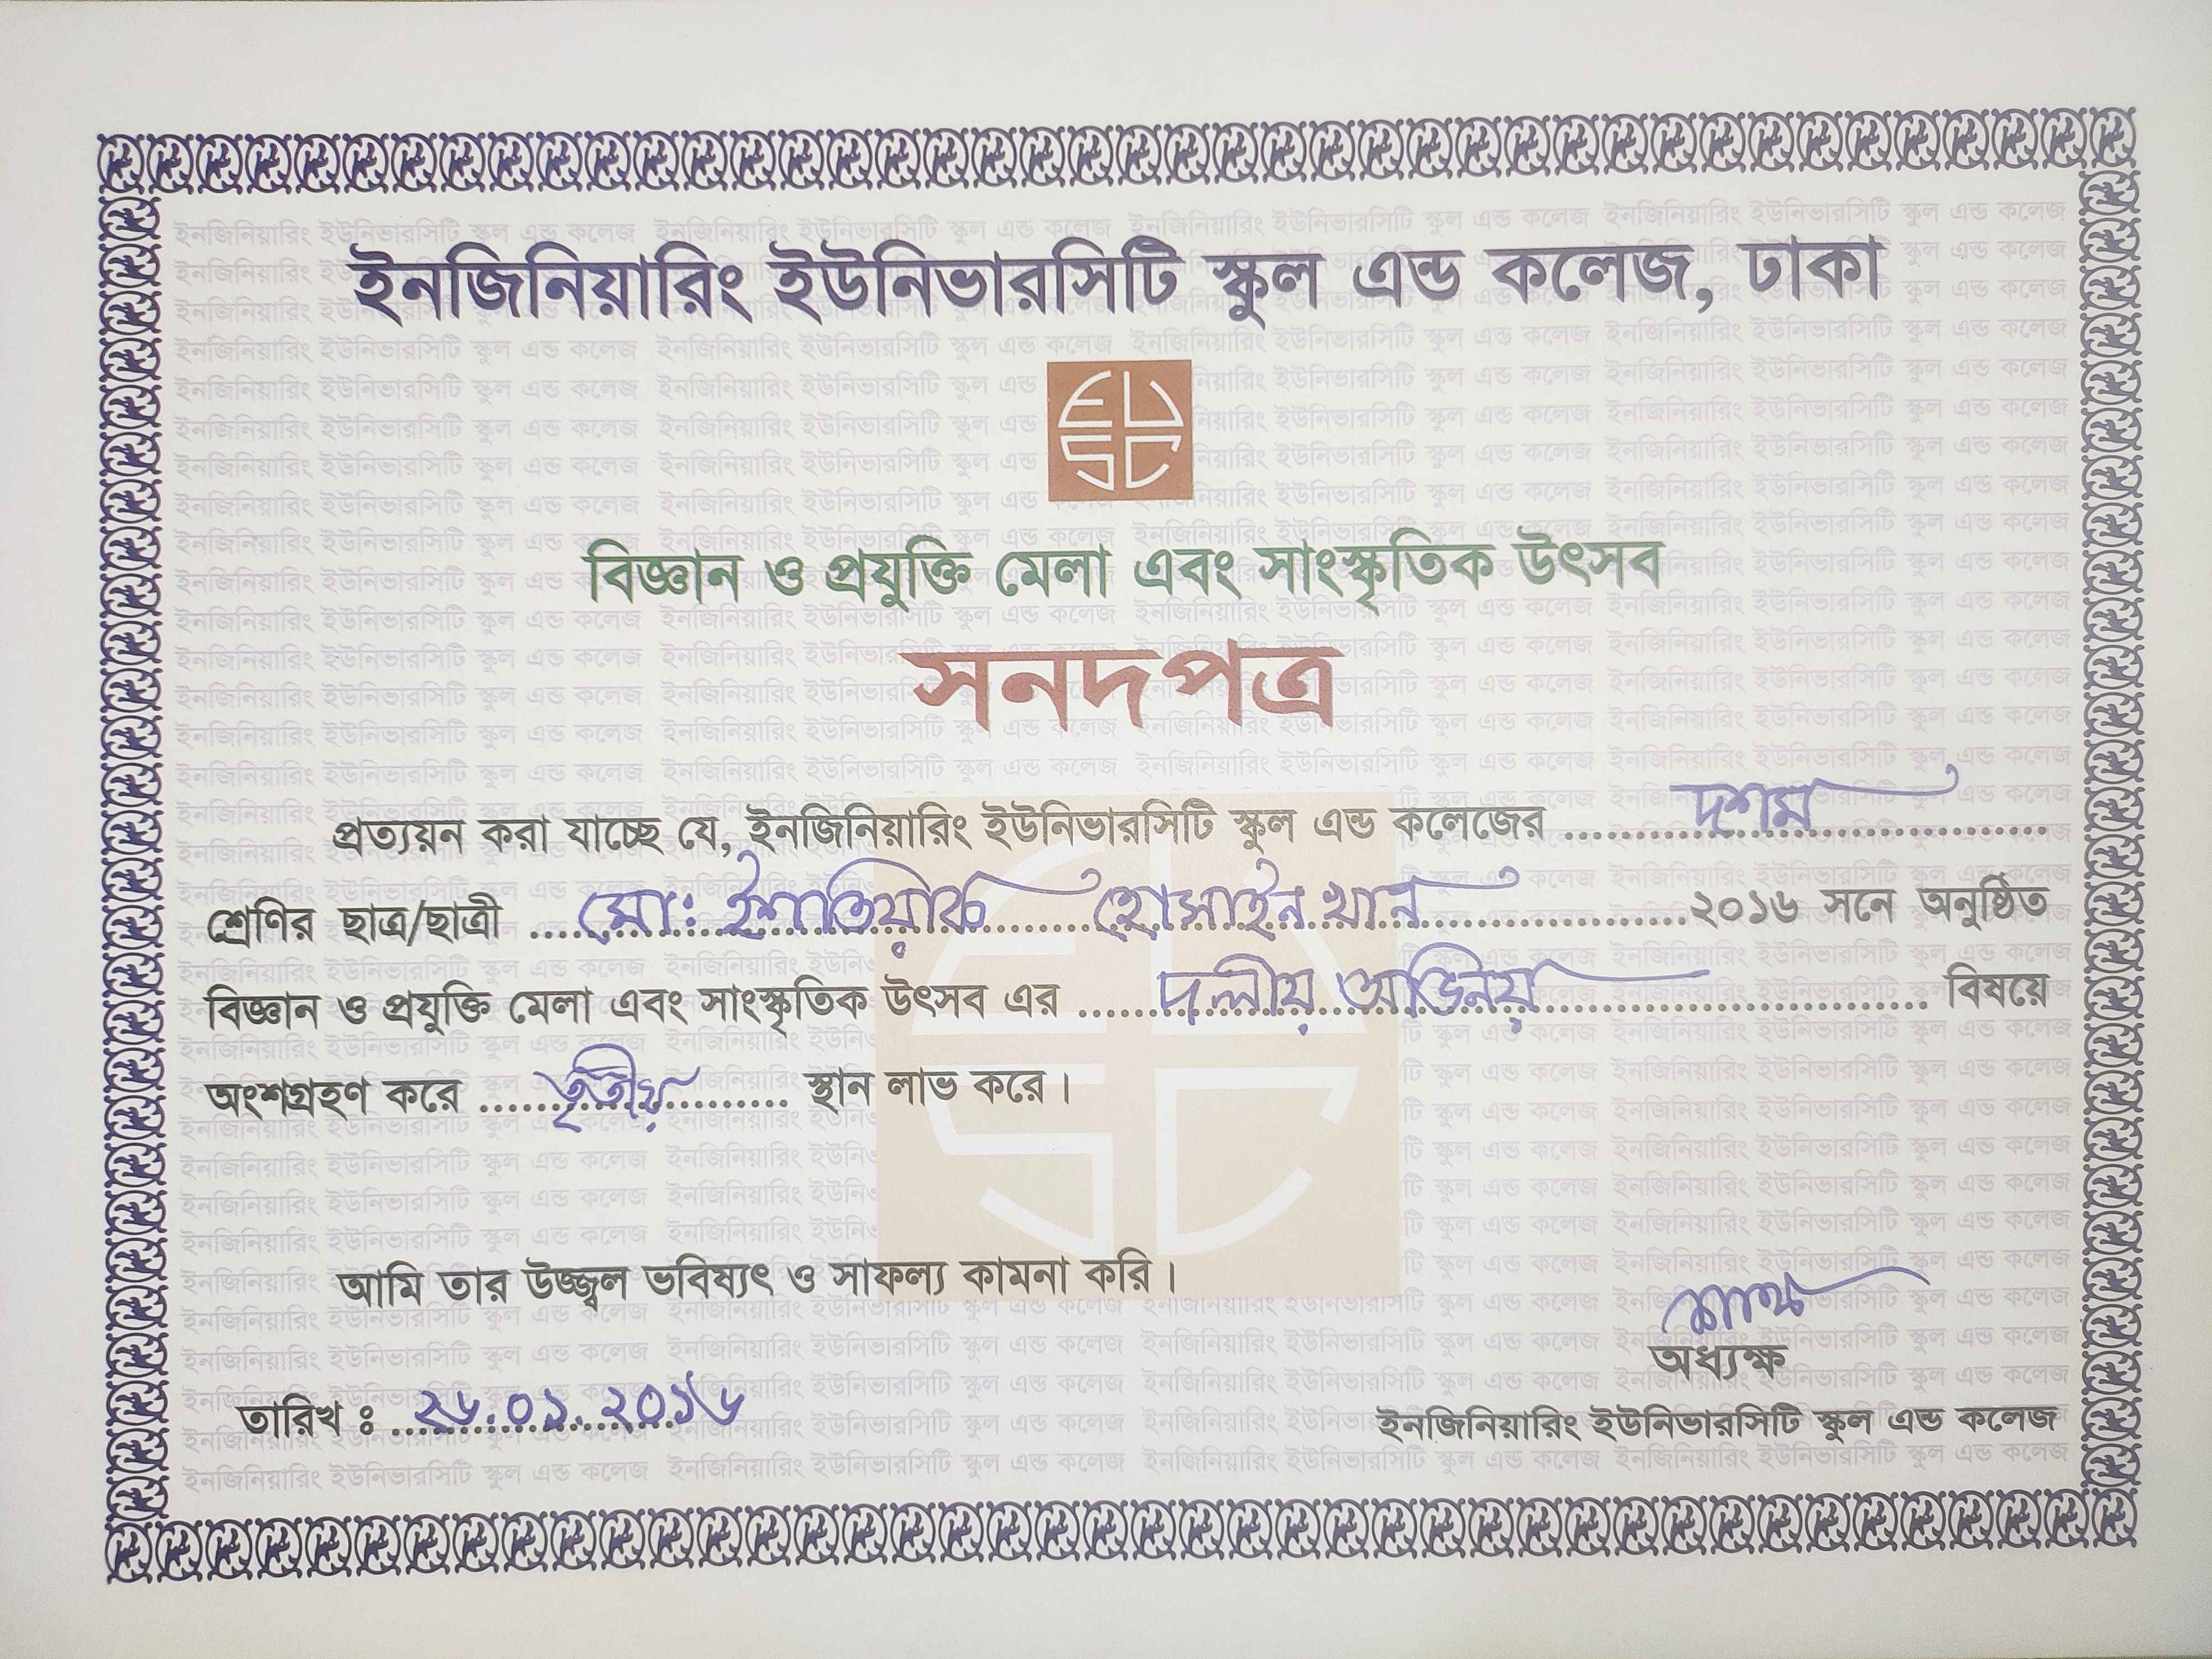 ইনজিনিয়ারিং ইউনিভারসিটি স্কুল এন্ড কলেজ, ঢাকা
EU
SC
বিজ্ঞান ও প্রযুক্তি মেলা এবং সাংস্কৃতিক উৎসব
সনদপত্র
প্রত্যয়ন করা যাচ্ছে যে, ইনজিনিয়ারিং ইউনিভারসিটি স্কুল এন্ড কলেজের দশম
শ্রেণির ছাত্র/ছাত্রী মো: ইশতিয়াক হোসাইন খান ২০১৬ সনে অনুষ্ঠিত
বিজ্ঞান ও প্রযুক্তি মেলা এবং সাংস্কৃতিক উৎসব এর দলীয় অভিনয় বিষয়ে
অংশগ্রহণ করে তৃতীয় স্থান লাভ করে।
আমি তার উজ্জ্বল ভবিষ্যৎ ও সাফল্য কামনা করি।
অধ্যক্ষ
তারিখ : ২৬.০১.২০১৬
ইনজিনিয়ারিং ইউনিভারসিটি স্কুল এন্ড কলেজ